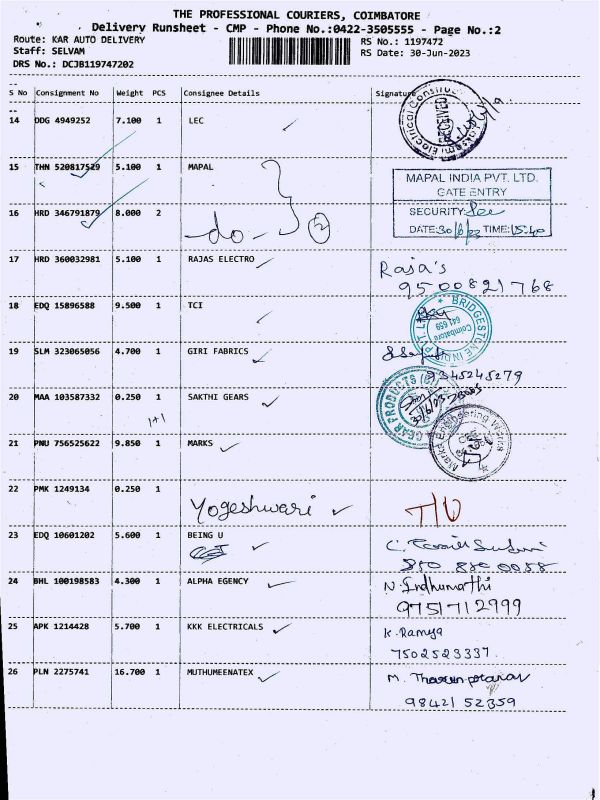 THE PROFESSIONAL COURIERS, COIMBATORE
Delivery Runsheet - CMP - Phone No.:0422-3505555 - Page No.:2
Route: KAR AUTO DELIVERY
RS No.: 1197472
Staff: SELVAM
RS Date: 30-Jun-2023
DRS No.: DCJB119747202
S No Consignment No Weight PCS Consignee Details Signature
14 DDG 4949252 7.100 1 LEC
RECEIVED
15 THN 520817529 5.100 1 MAPAL
MAPAL INDIA PVT. LTD.
GATE ENTRY
16 HRD 346791879 8.000 2 -do- 2
SECURITY:
DATE: 30/6/23 TIME: 15:40
17 HRD 360032981 5.100 1 RAJAS ELECTRO
Raja's
9500821768
18 EDQ 15896588 9.500 1 TCI
BRIDGESTONE INDIA PVT. LTD
Coimbatore
641 659
19 SLM 323065056 4.700 1 GIRI FABRICS
9345245279
20 MAA 103587332 0.250 1 SAKTHI GEARS
GEAR PRODUCTS
1+1
21 PNU 756525622 9.850 1 MARKS
Marks Engineering Works
22 PMK 1249134 0.250 1
Yogeshwari
T/U
23 EDQ 10601202 5.600 1 BEING U
850 880 0058
24 BHL 100198583 4.300 1 ALPHA EGENCY
N. Indhumathi
9751712999
25 APK 1214428 5.700 1 KKK ELECTRICALS
K. Ramya
7502523337
26 PLN 2275741 16.700 1 MUTHUMEENATEX
M.
98421 52359